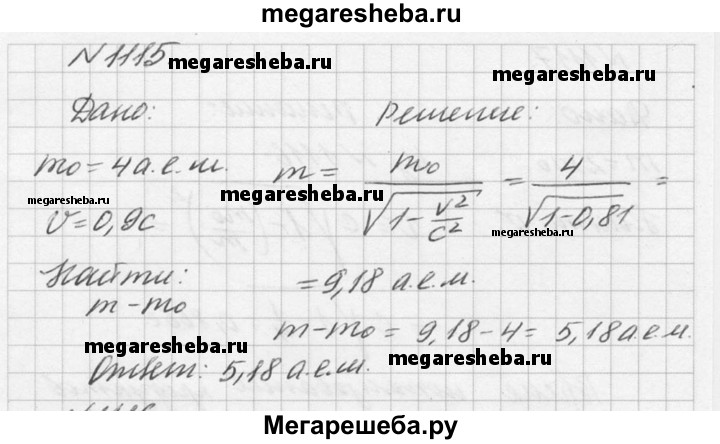 megaresheba.ru
N1115
megaresheba.ru
Дано: Решение:
m₀ = 4 а.е.м. m = m₀ / √(1 - v²/c²) = 4 / √(1-0,81) =
megaresheba.ru megaresheba.ru megaresheba.ru
v = 0,9c
Найти: = 9,18 а.е.м.
m - m₀
m - m₀ = 9,18 - 4 = 5,18 а.е.м.
megaresheba.ru megaresheba.ru
Ответ: 5,18 а.е.м.
Мегарешеба.ру